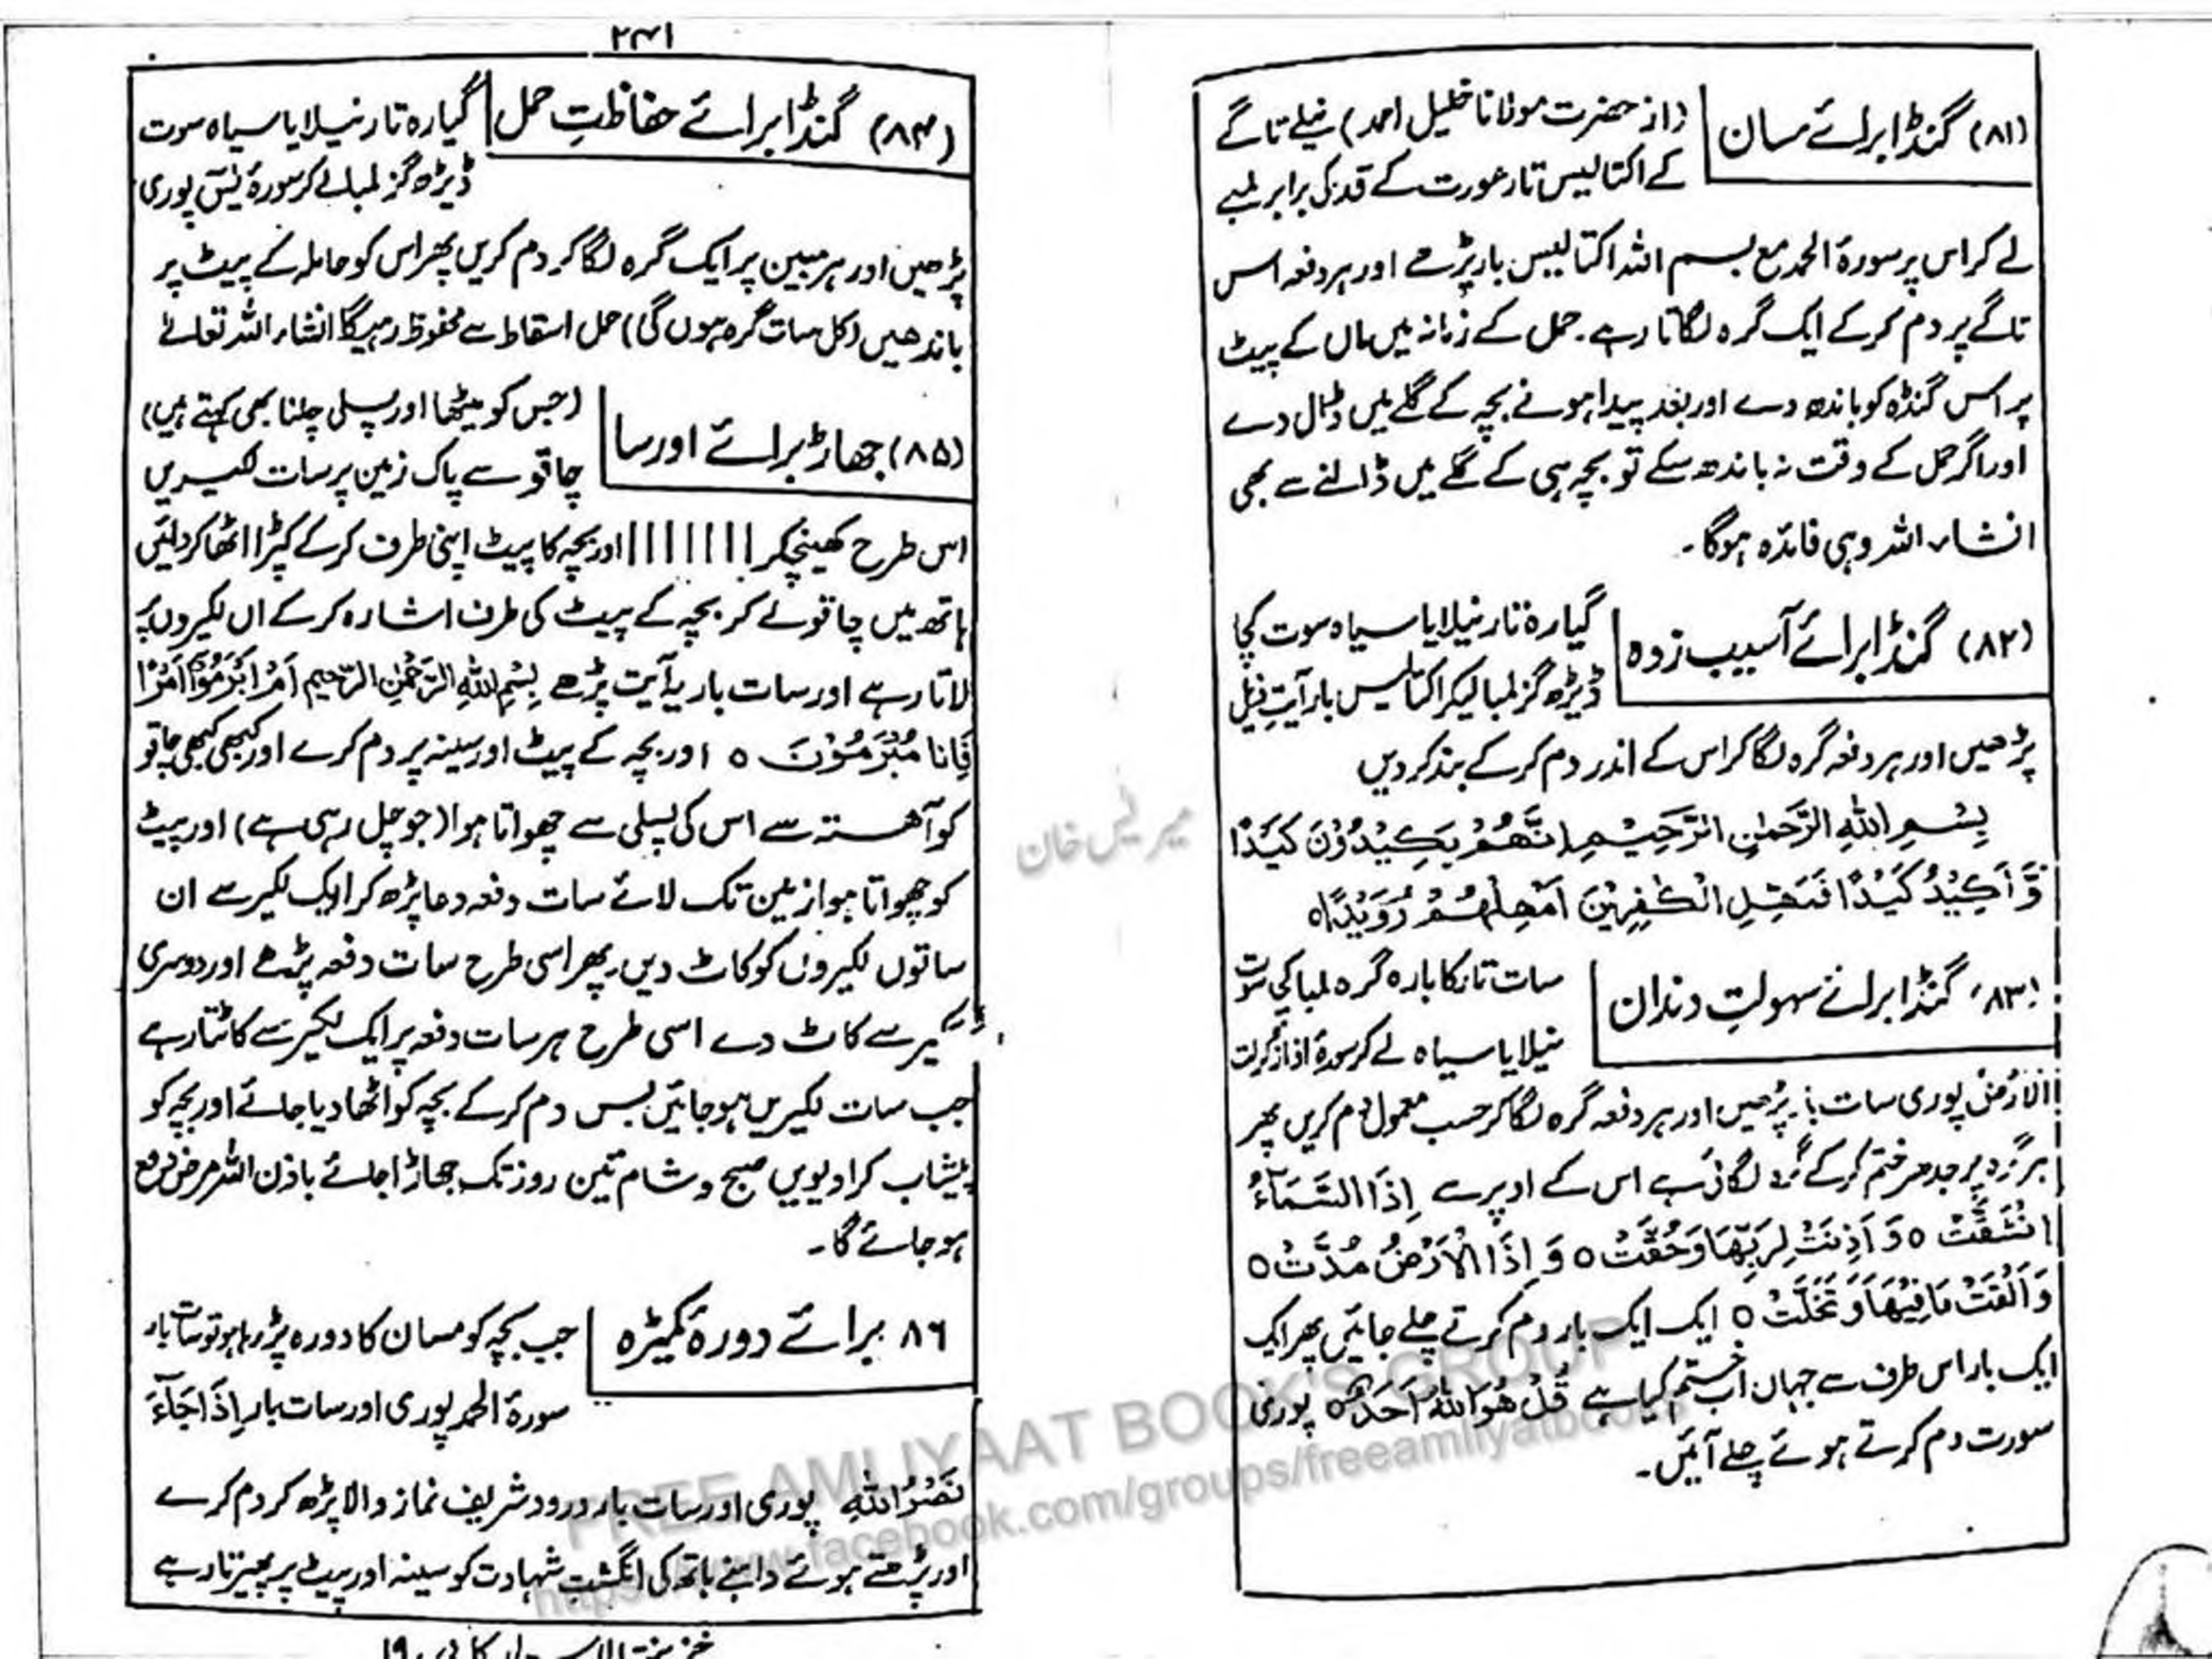 (۸۱) گنڈا برائے مسان
(از حضرت مولانا خلیل احمد) نیلے تاگے
کے اکتالیس تار عورت کے قد کی برابر لمبے
لے کر اس پر سورۃ الحمد مع بسم اللہ اکتالیس بار پڑھے اور ہر دفعہ اس
تاگے پر دم کر کے ایک گرہ لگاتا رہے۔ حمل کے زمانہ میں ماں کے پیٹ
پر اس گنڈہ کو باندھ دے اور بعد پیدا ہونے بچہ کے گلے میں ڈال دے
اور اگر حمل کے وقت نہ باندھ سکے تو بچہ ہی کے گلے میں ڈالنے سے بھی
انشاء اللہ وہی فائدہ ہوگا۔
(۸۲) گنڈا برائے آسیب زدہ
گیارہ تار نیلا یا سیاہ سوت کچا
ڈیڑھ گز لمبا لیکر اکتالیس بار آیت ذیل
پڑھیں اور ہر دفعہ گرہ لگا کر اس کے اندر دم کر کے بند کر دیں
بِسْمِ اللّٰهِ الرَّحْمٰنِ الرَّحِيْمِ اِنَّهُمْ يَكِيْدُوْنَ كَيْدًا
وَّ اَكِيْدُ كَيْدًا فَمَهِّلِ الْكٰفِرِيْنَ اَمْهِلْهُمْ رُوَيْدًا ○
۸۳) گنڈا برائے سہولتِ دندان
سات تار کا بارہ گرہ لمبا کچی سوت
نیلا یا سیاہ لے کر سورۃ اذا زلزلت
الارض پوری سات بار پڑھیں اور ہر دفعہ گرہ لگا کر حسب معمول دم کریں پھر
ہر گرہ پر جدھر ختم کر کے گرہ لگائی ہے اس کے اوپر سے اِذَا السَّمَآءُ
انْشَقَّتْ ○ وَ اَذِنَتْ لِرَبِّهَا وَحُقَّتْ ○ وَ اِذَا الْاَرْضُ مُدَّتْ ○
وَ اَلْقَتْ مَا فِيْهَا وَ تَخَلَّتْ ○ ایک ایک بار دم کرتے چلے جائیں پھر ایک
ایک بار اس طرف سے جہاں اب ختم کیا ہے قُلْ هُوَ اللّٰهُ اَحَدٌ ○ پوری
سورت دم کرتے ہوئے چلے آئیں۔
میر لیس خان
۲۴۱
(۸۴) گنڈا برائے حفاظتِ حمل
گیارہ تار نیلا یا سیاہ سوت
ڈیڑھ گز لمبا لے کر سورۂ یٰسٓ پوری
پڑھیں اور ہر مبین پر ایک گرہ لگا کر دم کریں پھر اس کو حاملہ کے پیٹ پر
باندھیں (کل سات گرہ ہوں گی) حمل اسقاط سے محفوظ رہیگا انشاء اللہ تعالےٰ
(۸۵) جھاڑ برائے اورسا
(جس کو میٹھا اور پسلی چلنا بھی کہتے ہیں)
چاقو سے پاک زمین پر سات لکیریں
اس طرح کھینچکر ا ا ا ا ا ا ا اور بچہ کا پیٹ اپنی طرف کر کے کپڑا اٹھا کر دائیں
ہاتھ میں چاقو لے کر بچہ کے پیٹ کی طرف اشارہ کر کے ان لکیروں پر
لاتا رہے اور سات بار یہ آیت پڑھے بِسْمِ اللّٰهِ الرَّحْمٰنِ الرَّحِيْمِ اَمْ اَبْرَمُوْٓا اَمْرًا
فَاِنَّا مُبْرِمُوْنَ ○ اور بچہ کے پیٹ اور سینہ پر دم کرے اور کبھی کبھی چاقو
کو آہستہ سے اس کی پسلی سے چھواتا ہوا (جو چل رہی ہے) اور پیٹ
کو چھواتا ہوا زمین تک لائے سات دفعہ دعا پڑھ کر ایک لکیر سے ان
ساتوں لکیروں کو کاٹ دیں۔ پھر اسی طرح سات دفعہ پڑھے اور دوسری
لکیر سے کاٹ دے اسی طرح ہر سات دفعہ پر ایک لکیر سے کاٹتا رہے
جب سات لکیریں ہو جائیں بس دم کر کے بچہ کو اٹھا دیا جائے اور بچہ کو
پیشاب کرا دیویں صبح و شام تین روز تک جھاڑا جائے باذن اللہ مرض رفع
ہو جائے گا۔
۸۶ برائے دورۂ کمیڑہ
جب بچہ کو مسان کا دورہ پڑ رہا ہو تو سات بار
سورۃ الحمد پوری اور سات بار اِذَا جَآءَ
نَصْرُ اللّٰهِ پوری اور سات بار درود شریف نماز والا پڑھ کر دم کرے
اور پڑھتے ہوئے داہنے ہاتھ کی انگشتِ شہادت کو سینہ اور پیٹ پر پھیرتا رہے
FREE AMLIYAAT BOOK'S GROUP
https://www.facebook.com/groups/freeamliyatbooks